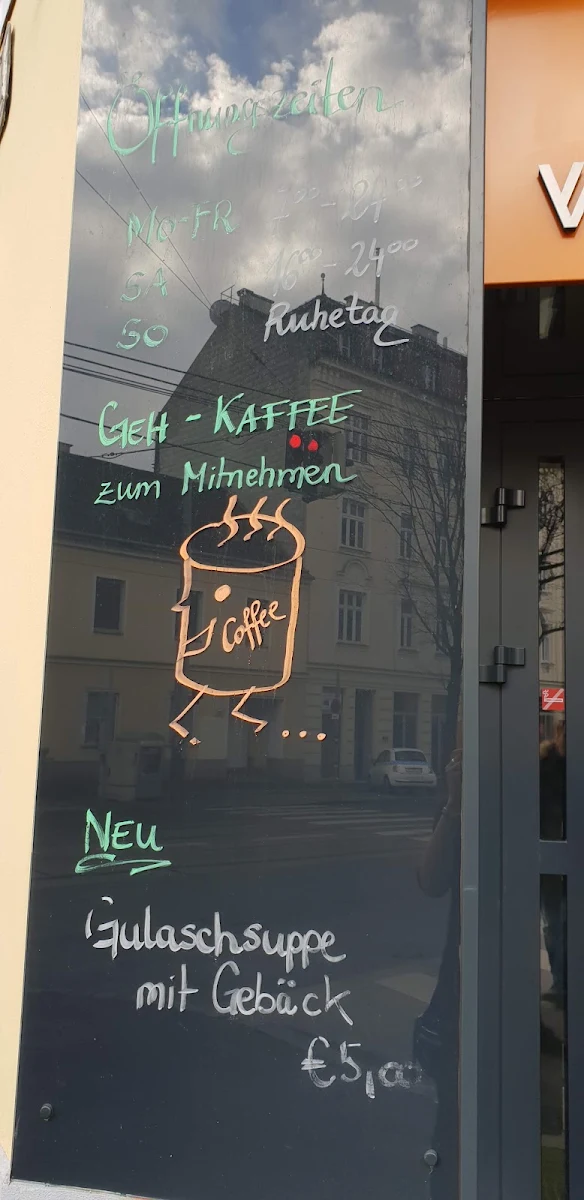 Öffnungszeiten
MO-FR
SA 16⁰⁰-24⁰⁰
SO Ruhetag
GEH-KAFFEE
zum Mitnehmen
Coffee
NEU
Gulaschsuppe
mit Gebäck
€5,00